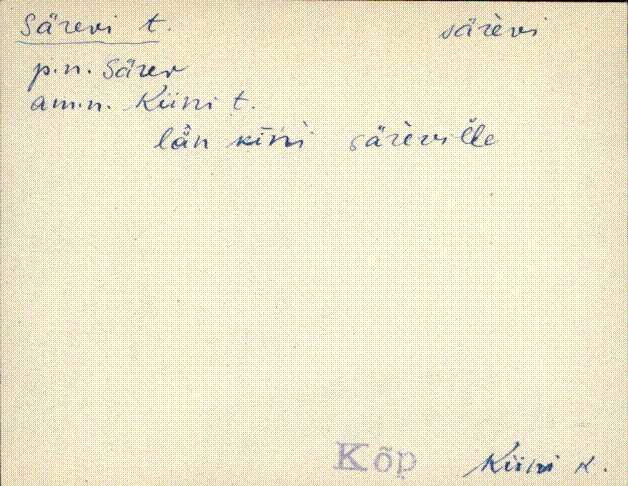 Särevi t. särèvi
p.n. Särev
am.n. Kiini t.
län kīni särèville
Kõp Kiini k.